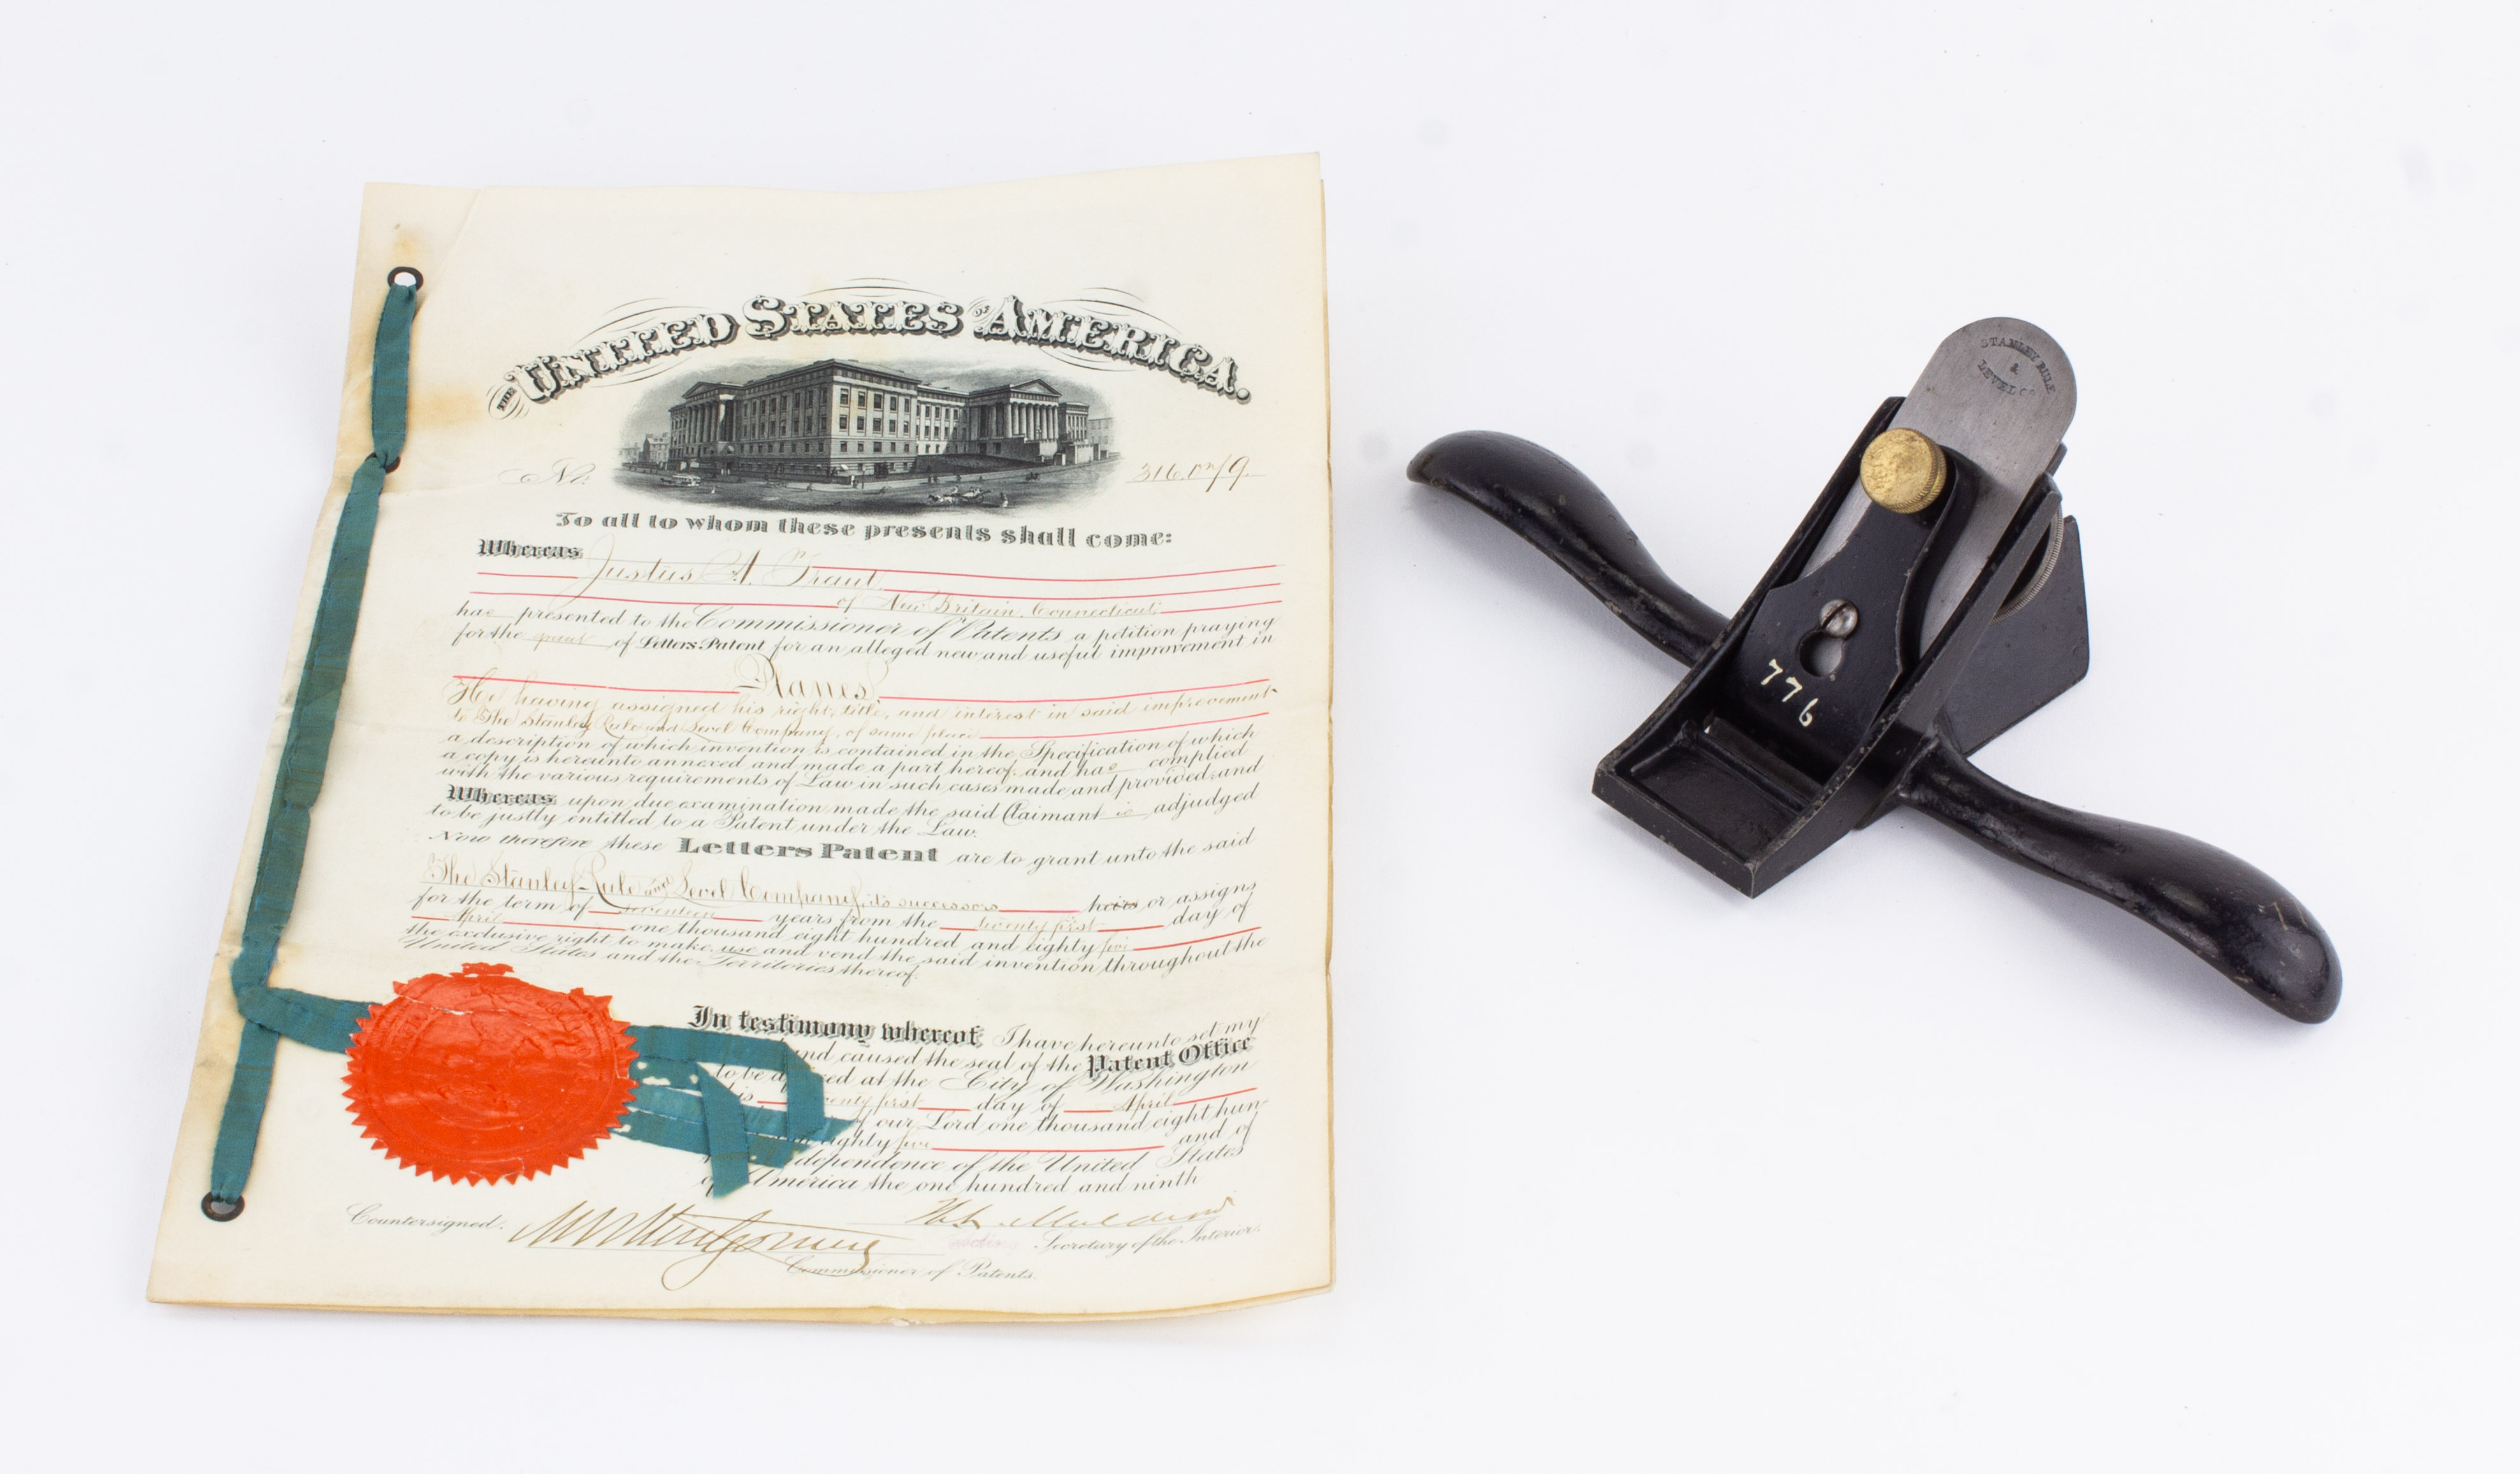 THE UNITED STATES OF AMERICA.
No. 316,079.
To all to whom these presents shall come:
Whereas Justus A. Traut,
of New Britain, Connecticut,
has presented to the Commissioner of Patents a petition praying
for the grant of Letters Patent for an alleged new and useful improvement in
Planes,
He having assigned his right, title, and interest in said improvement
to The Stanley Rule and Level Company, of same place
a description of which invention is contained in the Specification of which
a copy is hereunto annexed and made a part hereof, and has complied
with the various requirements of Law in such cases made and provided, and
Whereas upon due examination made the said Claimant is adjudged
to be justly entitled to a Patent under the Law.
Now therefore these Letters Patent are to grant unto the said
The Stanley Rule and Level Company, its successors heirs or assigns
for the term of seventeen years from the twenty first day of
April one thousand eight hundred and eighty five
the exclusive right to make, use and vend the said invention throughout the
United States and the Territories thereof.
In testimony whereof I have hereunto set my
and caused the seal of the Patent Office
to be at the City of Washington
first day of April
of our Lord one thousand eight hun-
eighty five and of
of the United States
of America the one hundred and ninth
Countersigned: Acting Secretary of the Interior.
Commissioner of Patents.
STANLEY RULE
&
LEVEL CO
776